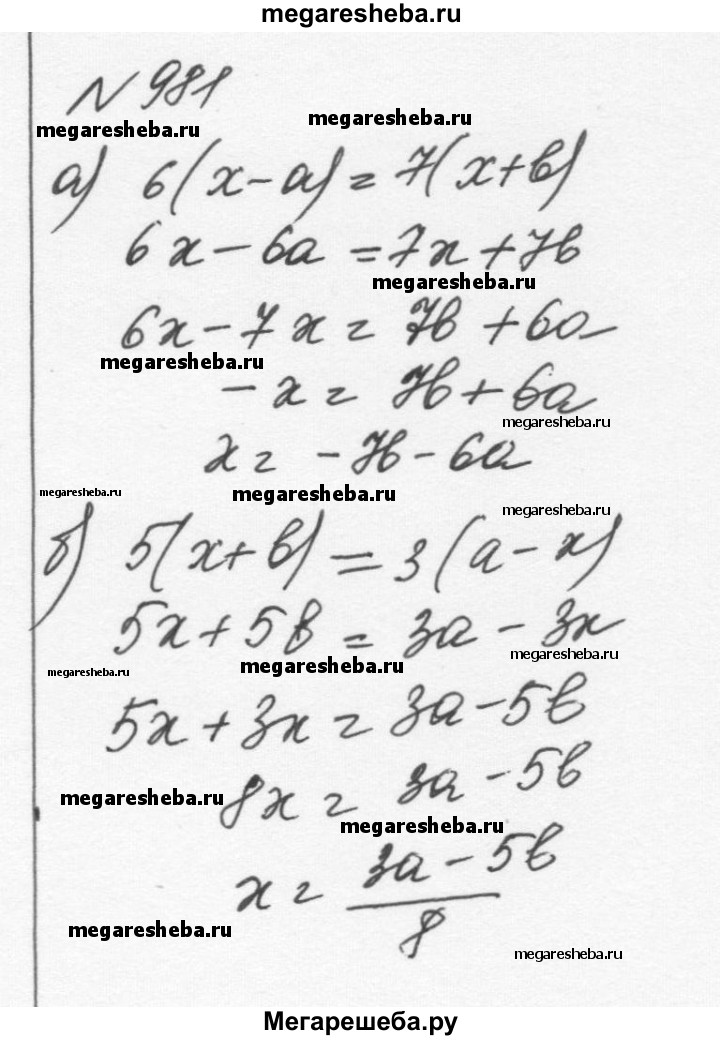 megaresheba.ru
N 981
megaresheba.ru
megaresheba.ru
а) 6(x-a) = 7(x+b)
6x-6a = 7x+7b
megaresheba.ru
6x-7x = 7b+6a
megaresheba.ru
-x = 7b+6a
megaresheba.ru
x = -7b-6a
megaresheba.ru
megaresheba.ru
megaresheba.ru
б) 5(x+b) = 3(a-x)
5x+5b = 3a-3x
megaresheba.ru
megaresheba.ru
megaresheba.ru
5x+3x = 3a-5b
8x = 3a-5b
megaresheba.ru
megaresheba.ru
x = 3a-5b
8
megaresheba.ru
megaresheba.ru
Мегарешеба.ру